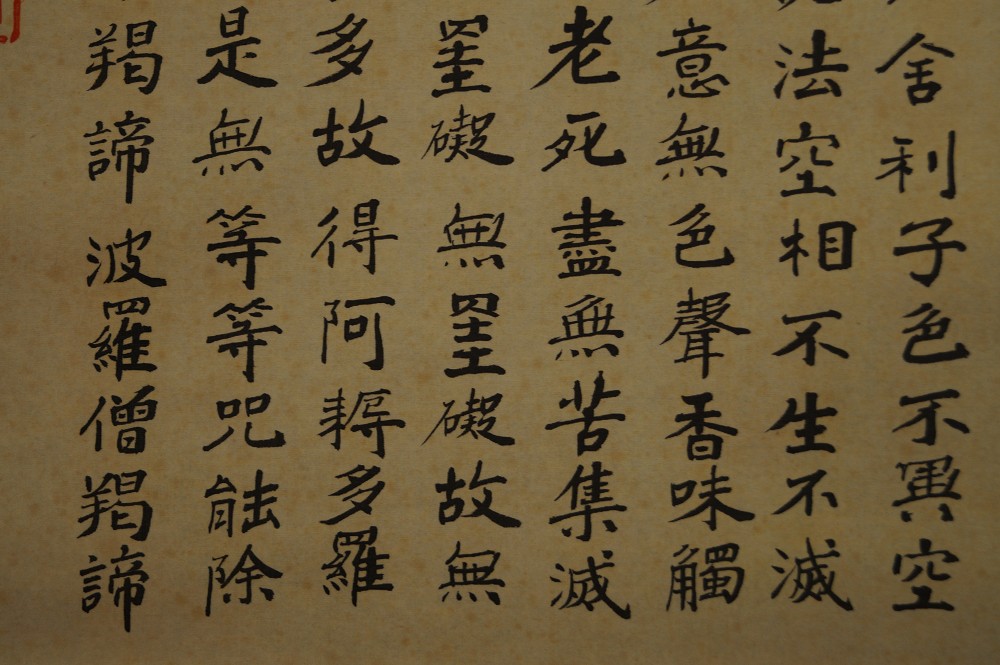 舍利子色不異空
法空相不生不滅
意無色聲香味觸
老死盡無苦集滅
罣礙無罣礙故無
多故得阿耨多羅
是無等等咒能除
羯諦波羅僧羯諦